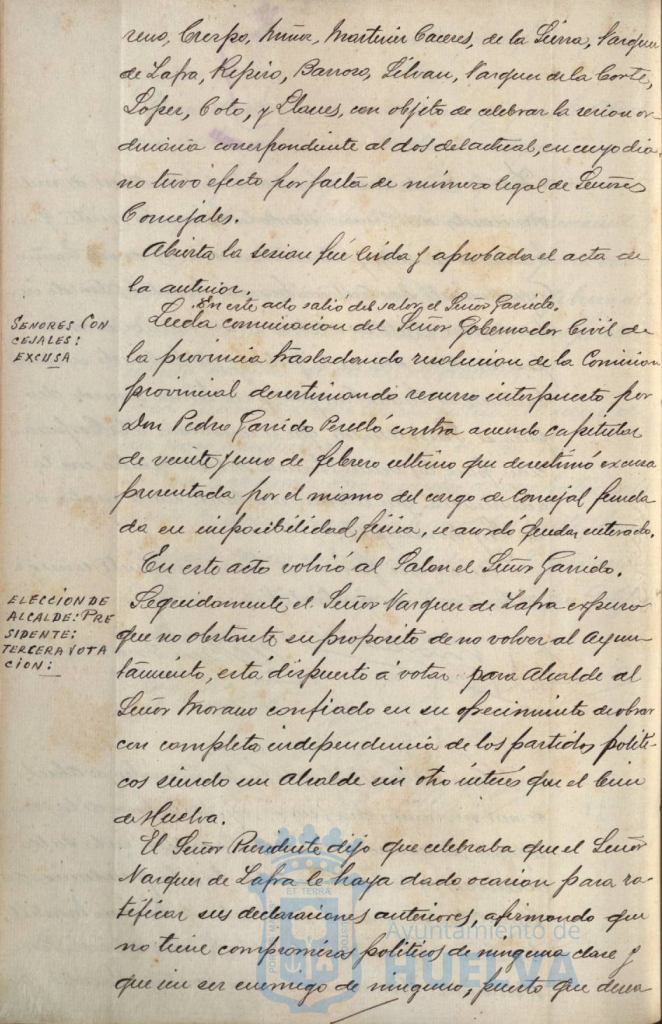 reno, Crespo, Muñoz, Martinez Caceres, de la Sierra, Vazquez
de Zafra, Repiso, Barroso, Silvan, Vazquez de la Corte,
Lopez, Coto, y Llanes, con objeto de celebrar la sesion or-
dinaria correspondiente al dos del actual, en cuyo dia
no tuvo efecto por falta de número legal de Señores
Concejales.
Abierta la sesion fué leida y aprobada el acta de
la anterior.
En este acto salió del salon el Señor Garrido.
SEÑORES CON
CEJALES:
EXCUSA
Leida comunicacion del Señor Gobernador Civil de
la provincia trasladando resolucion de la Comision
provincial desestimando recurso interpuesto por
Don Pedro Garrido Perelló contra acuerdo capitular
de veinte y uno de febrero último que desestimó excusa
presentada por el mismo del cargo de Concejal funda
da en imposibilidad física, se acordó quedar enterado.
En este acto volvió al Salon el Señor Garrido.
ELECCION DE
ALCALDE: PRE
SIDENTE:
TERCERA VOTA
CION:
Seguidamente el Señor Vazquez de Zafra expuso
que no obstante su propósito de no volver al Ayun-
tamiento, está dispuesto á votar para Alcalde al
Señor Morano confiado en su ofrecimiento de obrar
con completa independencia de los partidos políti-
cos siendo un Alcalde sin otro interés que el bien
de Huelva.
El Señor Presidente dijo que celebraba que el Señor
Vazquez de Zafra le haya dado ocasion para ra-
tificar sus declaraciones anteriores, afirmando que
no tiene compromisos políticos de ninguna clase y
que sin ser enemigo de ninguno, puesto que desea
Ayuntamiento de
HUELVA